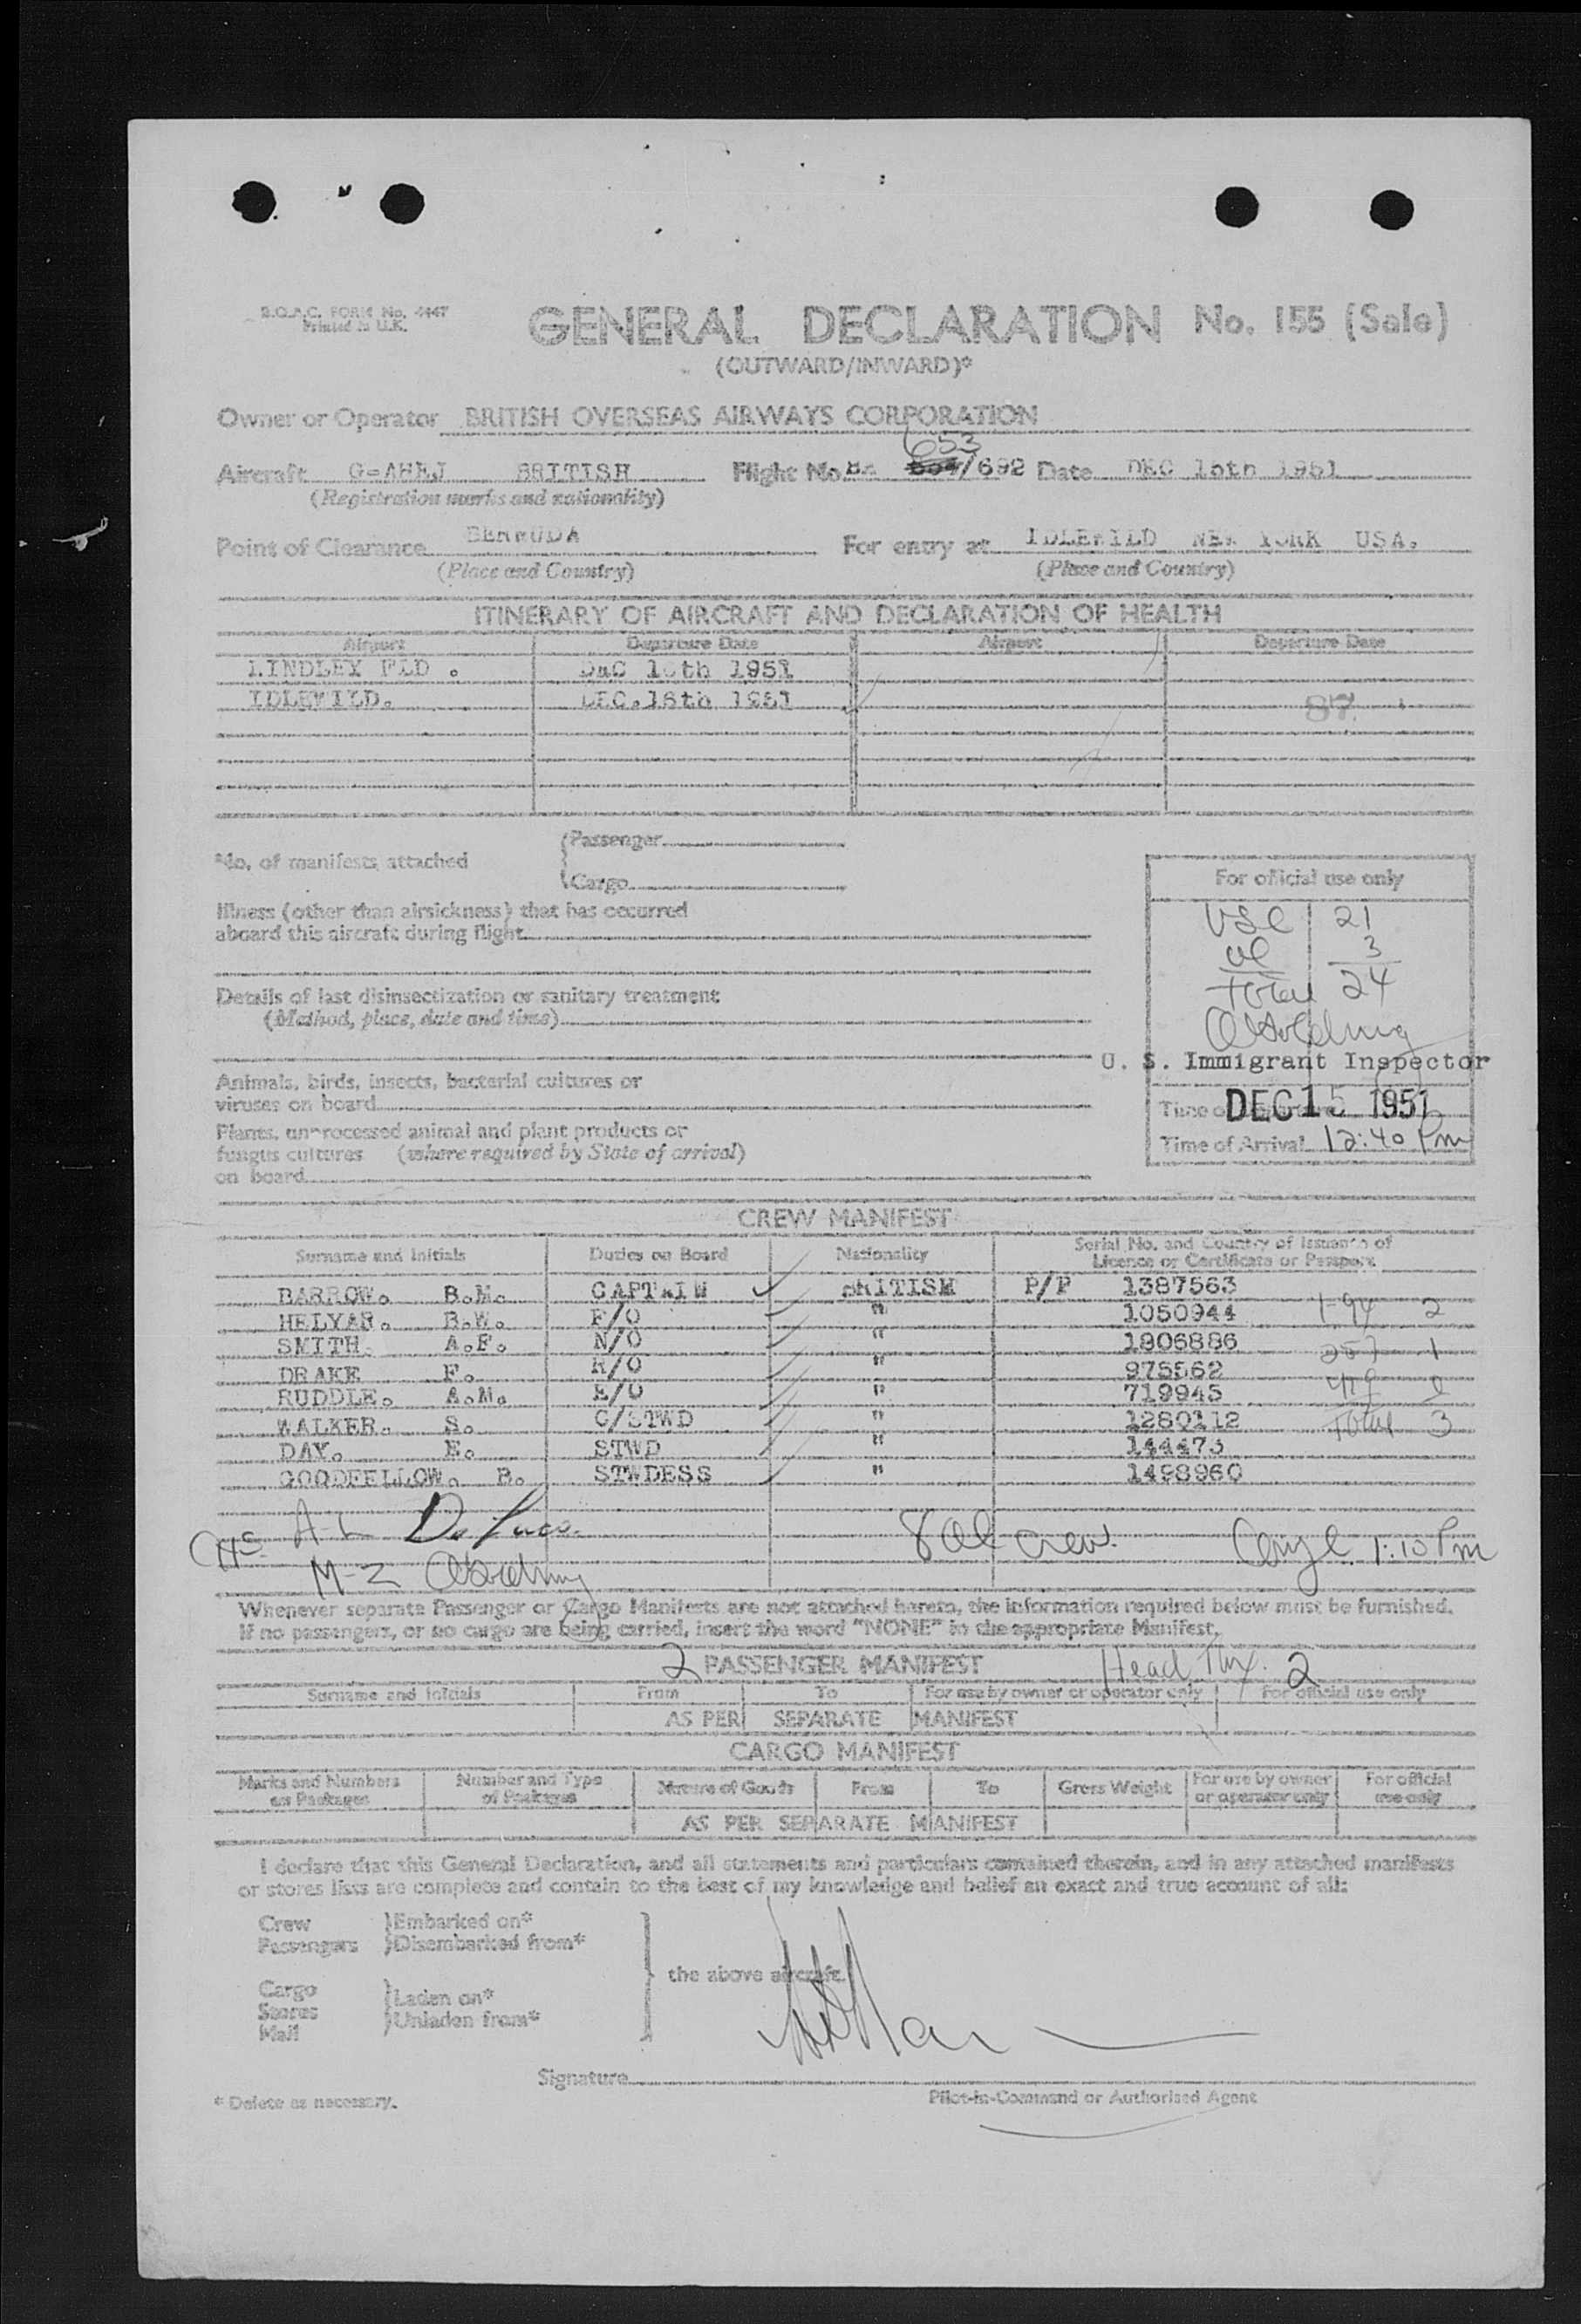 B.O.A.C. FORM No. 4447
Printed in U.K.
GENERAL DECLARATION No. 155 (Sale)
(OUTWARD/INWARD)*
Owner or Operator BRITISH OVERSEAS AIRWAYS CORPORATION
653
Aircraft G-AHEJ BRITISH Flight No. BA /692 Date DEC 15th 1951
(Registration marks and nationality)
Point of Clearance BERMUDA For entry at IDLEWILD NEW YORK USA.
(Place and Country) (Place and Country)
ITINERARY OF AIRCRAFT AND DECLARATION OF HEALTH
Airport Departure Date Airport Departure Date
KINDLEY FLD . DEC 15th 1951
IDLEWILD. DEC.15th 1951
87
*No. of manifests attached
Passenger
Cargo
Illness (other than airsickness) that has occurred
aboard this aircraft during flight
Details of last disinsectization or sanitary treatment
(Method, place, date and time)
Animals, birds, insects, bacterial cultures or
viruses on board
Plants, unprocessed animal and plant products or
fungus cultures (where required by State of arrival)
on board
For official use only
USC 21
al 3
Total 24
U. S. Immigrant Inspector
Time of Departure DEC 15 1951
Time of Arrival 12:40 Pm
CREW MANIFEST
Surname and Initials Duties on Board Nationality Serial No. and Country of Issuance of
Licence or Certificate or Passport
BARROW. B.M. CAPTAIN BRITISH P/P 1387563
HELYAR. B.W. F/O " 1050944 I-94 2
SMITH. A.F. N/O " 1906886 257 1
DRAKE F. R/O " 975562
RUDDLE. A.M. E/O " 719945
WALKER. S. C/STWD " 1280112 Total 3
DAY. E. STWD " 144473
GOODFELLOW. B. STWDESS " 1498960
A-L
M-Z
8 al crew 1:10 Pm
Whenever separate Passenger or Cargo Manifests are not attached hereto, the information required below must be furnished.
If no passengers, or no cargo are being carried, insert the word "NONE" in the appropriate Manifest.
2 PASSENGER MANIFEST Head Tax. 2
Surname and Initials From To For use by owner or operator only For official use only
AS PER SEPARATE MANIFEST
CARGO MANIFEST
Marks and Numbers on Packages Number and Type of Packages Nature of Goods From To Gross Weight For use by owner or operator only For official use only
AS PER SEPARATE MANIFEST
I declare that this General Declaration, and all statements and particulars contained therein, and in any attached manifests
or stores lists are complete and contain to the best of my knowledge and belief an exact and true account of all:
Crew Embarked on*
Passengers Disembarked from*
the above aircraft.
Cargo
Stores Laden on*
Mail Unladen from*
Signature
* Delete as necessary. Pilot-in-Command or Authorised Agent